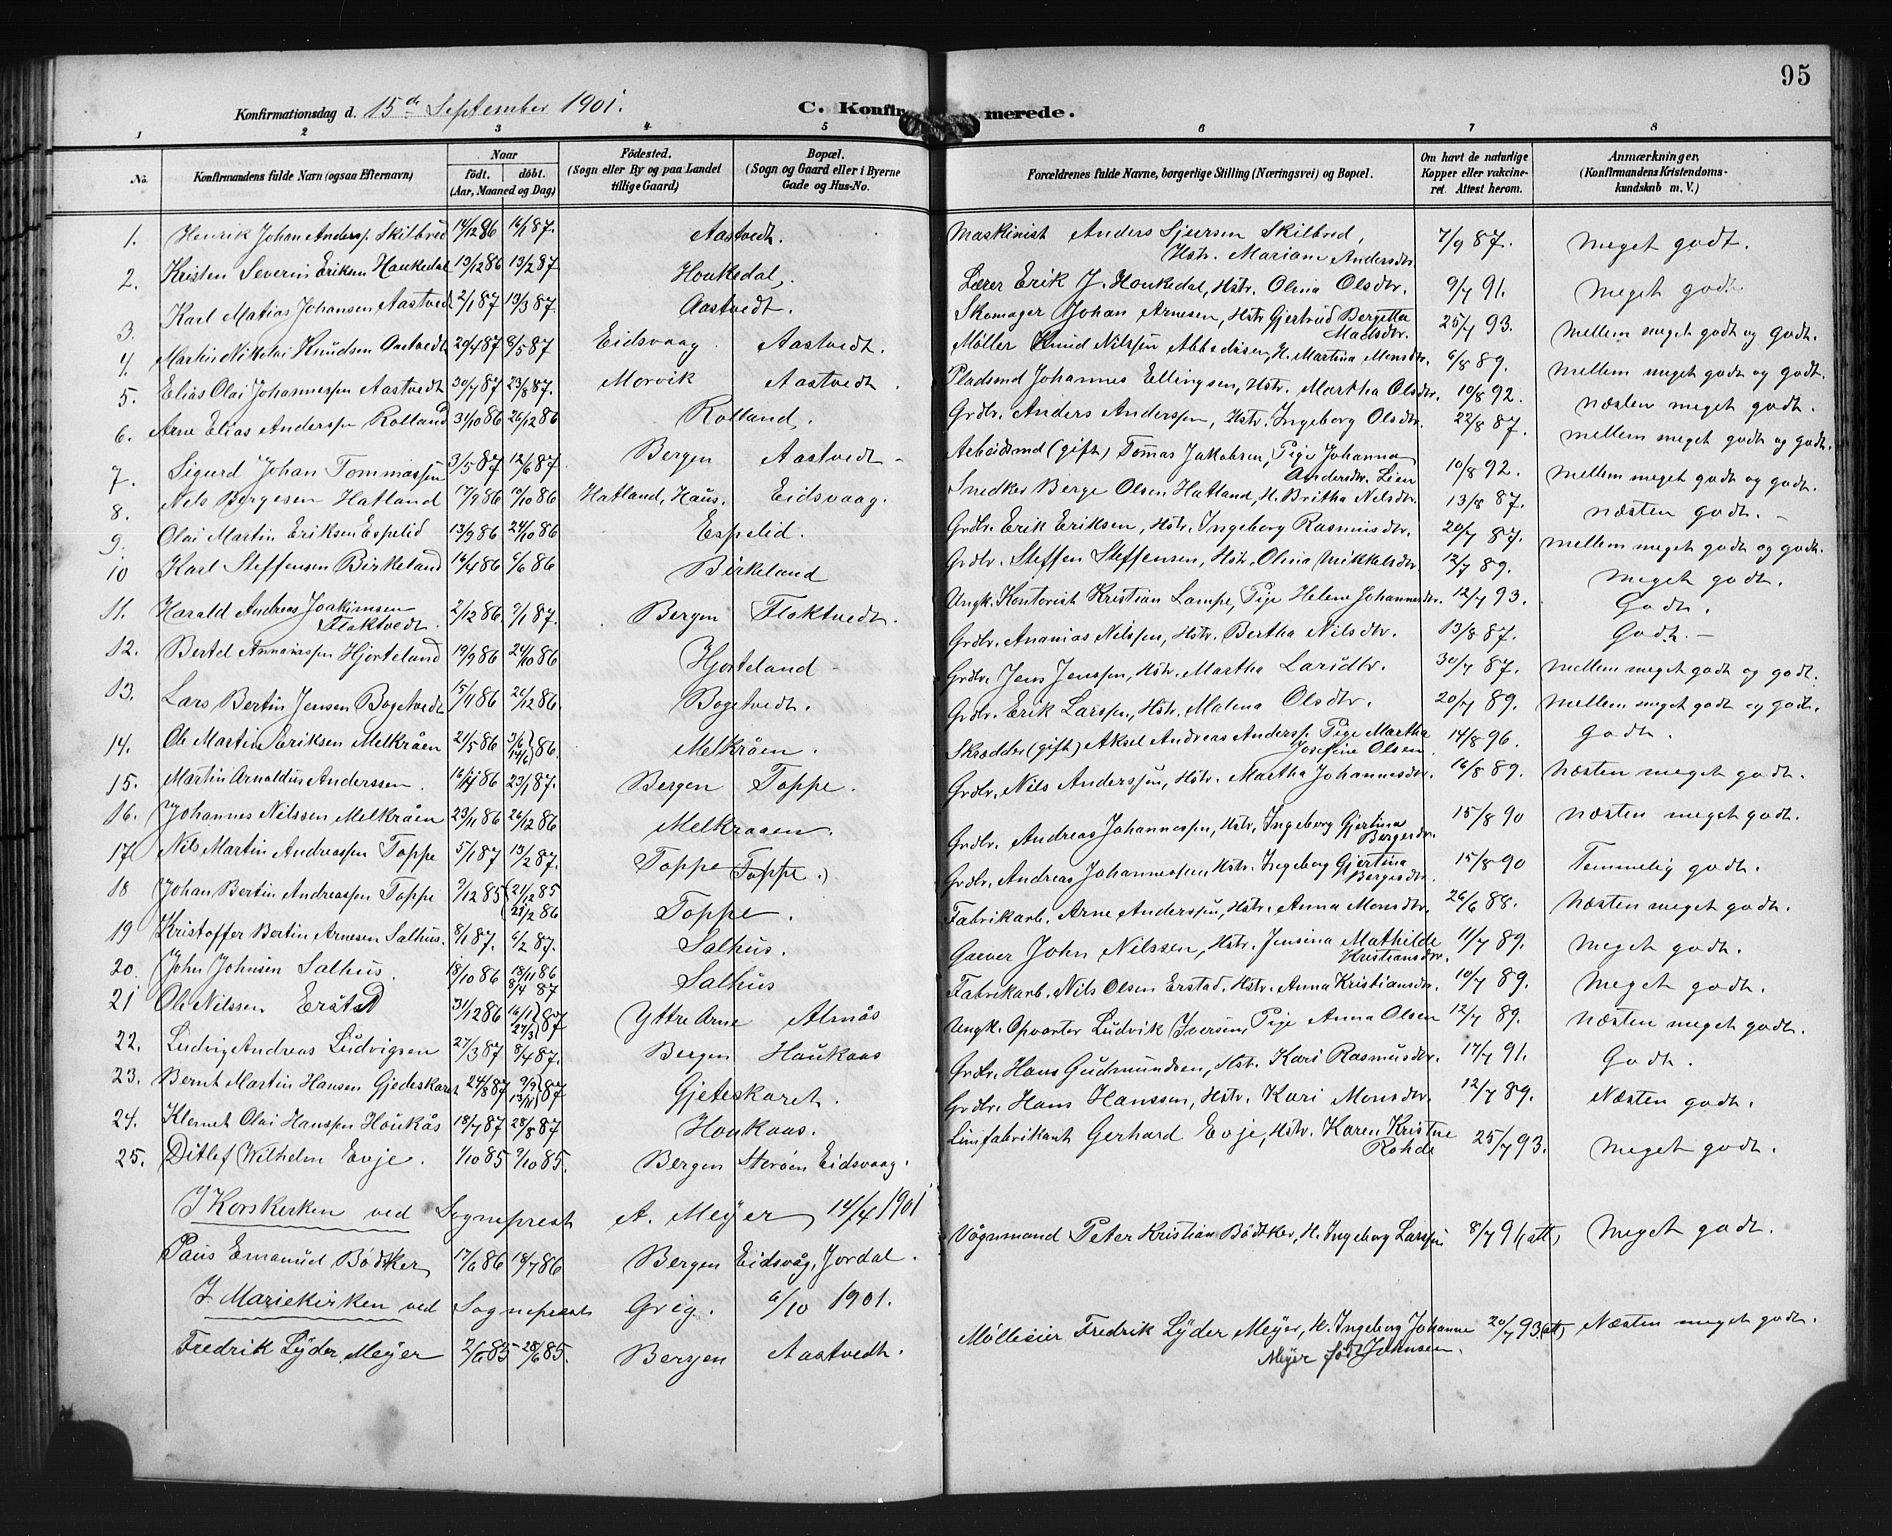 95
Konfirmationsdag d. 15de September 1901. C. Konfirmerede.
1 2 3 4 5 6 7 8
No. Konfirmandens fulde Navn (ogsaa Efternavn) Naar født. døbt. (Aar, Maaned og Dag) Fødested. (Sogn eller By og paa Landet tillige Gaard) Bopæl. (Sogn og Gaard eller i Byerne Gade og Hus-No. Forældrenes fulde Navne, borgerlige Stilling (Næringsvei) og Bopæl. Om havt de naturlige Kopper eller vakcineret. Attest herom. Anmærkninger, (Konfirmandens Kristendomskundskab m. V.)
1. Henrik Johan Anders. Skilbred 14/12 86 16/1 87. Aastvedt. Maskinist Anders Sjursen Skilbred, Hstr. Mariane Andersdtr. 7/9 87. Meget godt.
2. Kristen Severin Eriksen Houkedal 13/12 86 13/2 87 Houkedal, Lærer Erik J. Houkedal, Hstr. Olina Olsdtr. 9/7 91. Meget godt.
3. Karl Matias Johansen Aastvedt 2/1 87 13/3 87. Aastvedt. Skomager Johan Arnesen, Hstr Gjertrud Bergetta Madsdtr. 25/7 93. Mellem meget godt og godt.
4. Martin Nikolai Knudsen Aastvedt 29/4 87 8/5 87 Eidsvaag. Aastvedt. Møller Knud Nilssen, H. Martina Monsdtr. 6/8 89. Mellem meget godt og godt.
5. Elias Olai Johannessen Aastvedt 30/7 87 23/8 87. Morvik Aastvedt. Pladsmd Johannes Ellingsen, Hstr. Martha Olsdtr. 10/8 92. Næsten meget godt.
6. Arne Elias Anderssen Rolland 31/10 86 26/12 86 Rolland. Grdbr. Anders Anderssen, Hstr. Ingeborg Olsdtr. 22/8 87. Mellem meget godt og godt.
7. Sigurd Johan Tommassen 3/5 87 12/6 87. Bergen Aastvedt - Arbeidsmd (gift) Tomas Jakobsen, Pige Johanna Andersdtr. Lien 10/8 92. Mellem meget godt og godt.
8. Nels Bergesen Hatland 17/9 86 10/10 86 Hatland, Haus. Eidsvaag. Snedker Berge Olsen Hatland, H. Britha Nilsdtr. 13/8 87. Næsten godt. -
9. Olai Martin Eriksen Espelid 13/9 86 24/10 86 Espelid. Grdbr. Erik Eriksen, Hstr. Ingeborg Rasmusdtr. 20/7 87. Mellem meget godt og godt.
10 Karl Steffensen Birkeland 16/4 86 6/6 86 Birkeland Grdbr. Steffen Steffensen, Hstr. Olina Mikkelsdtr 12/7 89. Meget godt.
11. Harald Andreas Joakimsen Flaktvedt. 2/12 86. 9/1 87. Bergen Flaktvedt. Ungk. Kontorist Kristian Lampe, Pige Helene Johannesdtr. 12/7 93. Godt.
12. Bertel Ananiassen Hjorteland 19/9 86 24/10 86 Hjorteland - Grdbr. Ananias Nilssen, Hstr. Bertha Nilsdtr. 13/8 87. Godt. -
13. Lars Bertin Jensen Bogetvedt 15/11 86 26/12 86. Bogetvedt. Grdbr. Jens Jenssen, Hstr. Martha Larsdtr. 30/7 87. Mellem meget godt og godt.
14. Ole Martin Eriksen Melkråen 21/5 86 3/6 14/6 } 86. Melkråen. Grdbr. Erik Larssen, Hstr. Malena Olsdtr. 20/7 89. Mellem meget godt og godt.
15. Martin Arnoldus Anderssen. 16/11 86 23/1 87. Bergen Toppe. Skrædder (gift) Aksel Andreas Anderss. Pige Martha Josefine Olsen 14/8 96. Godt.
16. Johannes Nilssen Melkråen 23/11 86 26/12 86 Melkraaen. Grdbr. Nils Anderssen, Hstr. Martha Johannesdtr. 16/8 89. Næsten meget godt.
17 Nils Martin Andreassen Toppe 5/1 87 13/2 87. Toppe (Toppe.) Grdbr. Andreas Johannessen, Hstr. Ingeborg Gjertina Bergesdtr. 15/8 90 Næsten meget godt.
18 Johan Bertin Andreassen Toppe 9/12 85 (21/12 85 21/2 86 Toppe. Grdbr. Andreas Johannessen, Hstr. Ingeborg Gjertina Bergesdtr. 15/8 90 Temmelig godt.
19 Kristoffer Bertin Arnesen Salhus. 8/1 87. 6/2 87. Salhus. Fabrikarb. Arne Anderssen, Hstr. Anna Monsdtr. 26/6 88. Næsten meget godt.
20. John Johnsen Salhus. 18/10 86 18/11 86 8/4 87 Salhus Gaver John Nilssen, Hstr. Jensina Mathilde Kristiansdtr. 11/7 89. Meget godt.
21 Ole Nilssen Erstad 31/12 86 16/1 27/3 } 87 Yttre Arne Almås Fabrikarb. Nils Olsen Erstad. Hstr. Anna Kristiansdtr. 10/7 89. Meget godt.
22. Ludvig Andreas Ludvigsen 27/3 87 8/4 87. Bergen Houkaas Ungk. Opvarter Ludvik Iversen, Pige Anna Olsen 12/7 89. Næsten meget godt.
23. Bernt Martin Hansen Gjedeskaret 24/8 87 9/9 13/11 } 87 Gjeteskaret. Grdbr. Hans Gudmundsen, Hstr. Kari Rasmusdtr. 17/7 91. Godt.
24. Klemet Olai Hanssen Houkås 18/7 87 28/8 87 Houkaas. Grdbr. Hans Hanssen, Hstr. Kari Monsdtr. 12/7 89. Næsten godt.
25. Ditlef Wilhelm Evje. 1/10 85 9/10 85. Bergen Storøen Eidsvaag. Limfabrikant Gerhard Evje, Hstr. Karen Kristine Rohde 25/7 93. Meget godt.
I Korskirken ved Sogneprest A. Meyer 14/4 1901
Paus Emanuel Bødtker 17/6 86 18/7 86 Bergen Eidsvåg, Jordal. Vognmand Peter Kristian Bødtker, H. Ingeborg Larssen 8/7 91 (att) Meget godt.
I Mariekirken ved Sogneprest Grieg. 6/10 1901.
Fredrik Lyder Meyer 2/6 85 28/6 85. Bergen Aastvedt. Fredrik Lyder Meyer, H. Ingeborg Johanne Meyer født Johnsen. 20/7 93 (att) Næsten meget godt.